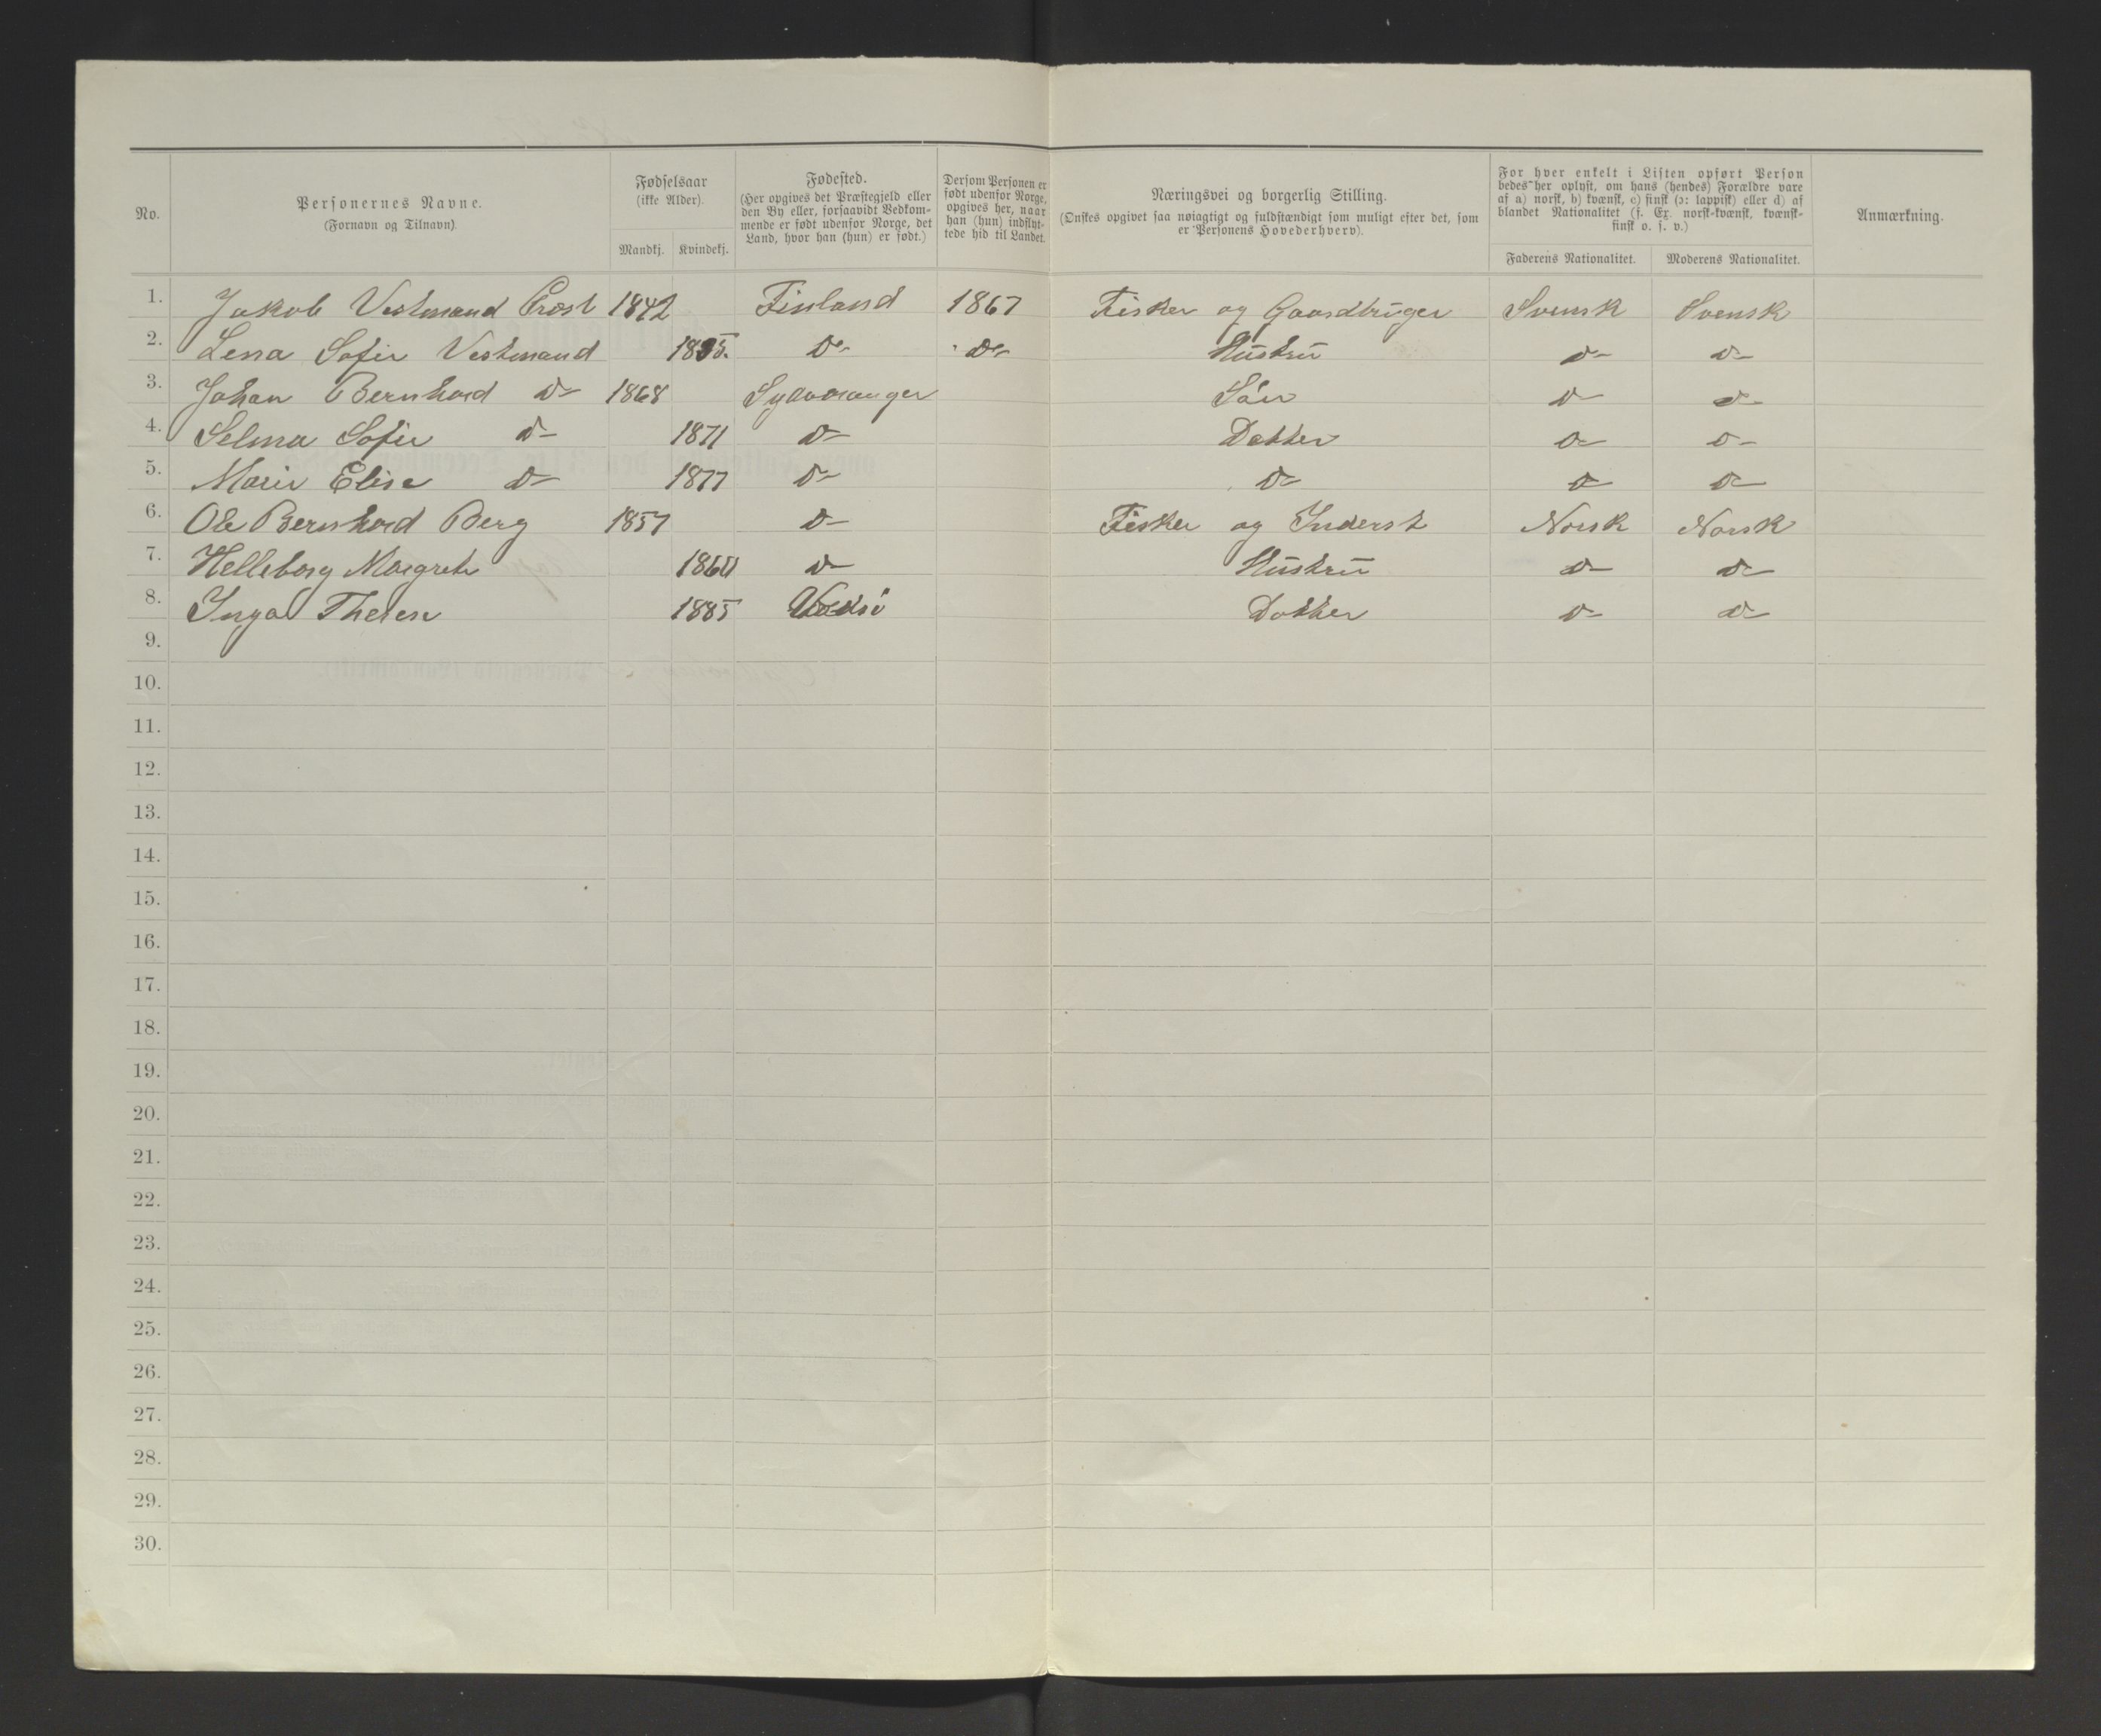 No.
Personernes Navne.
(Fornavn og Tilnavn).
Fødselsaar
(ikke Alder).
Mandkj. Kvindekj.
Fødested.
(Her opgives det Præstegjeld eller
den By eller, forsaavidt Vedkom-
mende er født udenfor Norge, det
Land, hvor han (hun) er født.)
Dersom Personen er
født udenfor Norge,
opgives her, naar
han (hun) indflyt-
tede hid til Landet.
Næringsvei og borgerlig Stilling.
(Ønskes opgivet saa nøiagtigt og fuldstændigt som muligt efter det, som
er Personens Hovederhverv).
For hver enkelt i Listen opført Person
bedes her oplyst, om hans (hendes) Forældre vare
af a) norsk, b) kvænsk, c) finsk (ɔ: lappisk) eller d) af
blandet Nationalitet (f. Ex. norsk-kvænsk, kvænsk-
finsk o. s. v.)
Faderens Nationalitet. Moderens Nationalitet.
Anmærkning.
1. Jakob Vestmand 1842 Finland 1867 Fisker og Gaardbruger Svensk Svensk
2. Lena Sofie Vestmand do do Hustru do do
3. Johan Bernhard do 1868 Sydvaranger Søn do do
4. Selma Sofie do 1871 do Datter do do
5. Marie Elise do 1877 do do do do
6. Ole Bernhard Berg 1857 do Fisker og Inderst Norsk Norsk
7. Helleborg Margrete do Hustru do do
8. Inga Therese 1885 Vadsö Datter do do
9.
10.
11.
12.
13.
14.
15.
16.
17.
18.
19.
20.
21.
22.
23.
24.
25.
26.
27.
28.
29.
30.